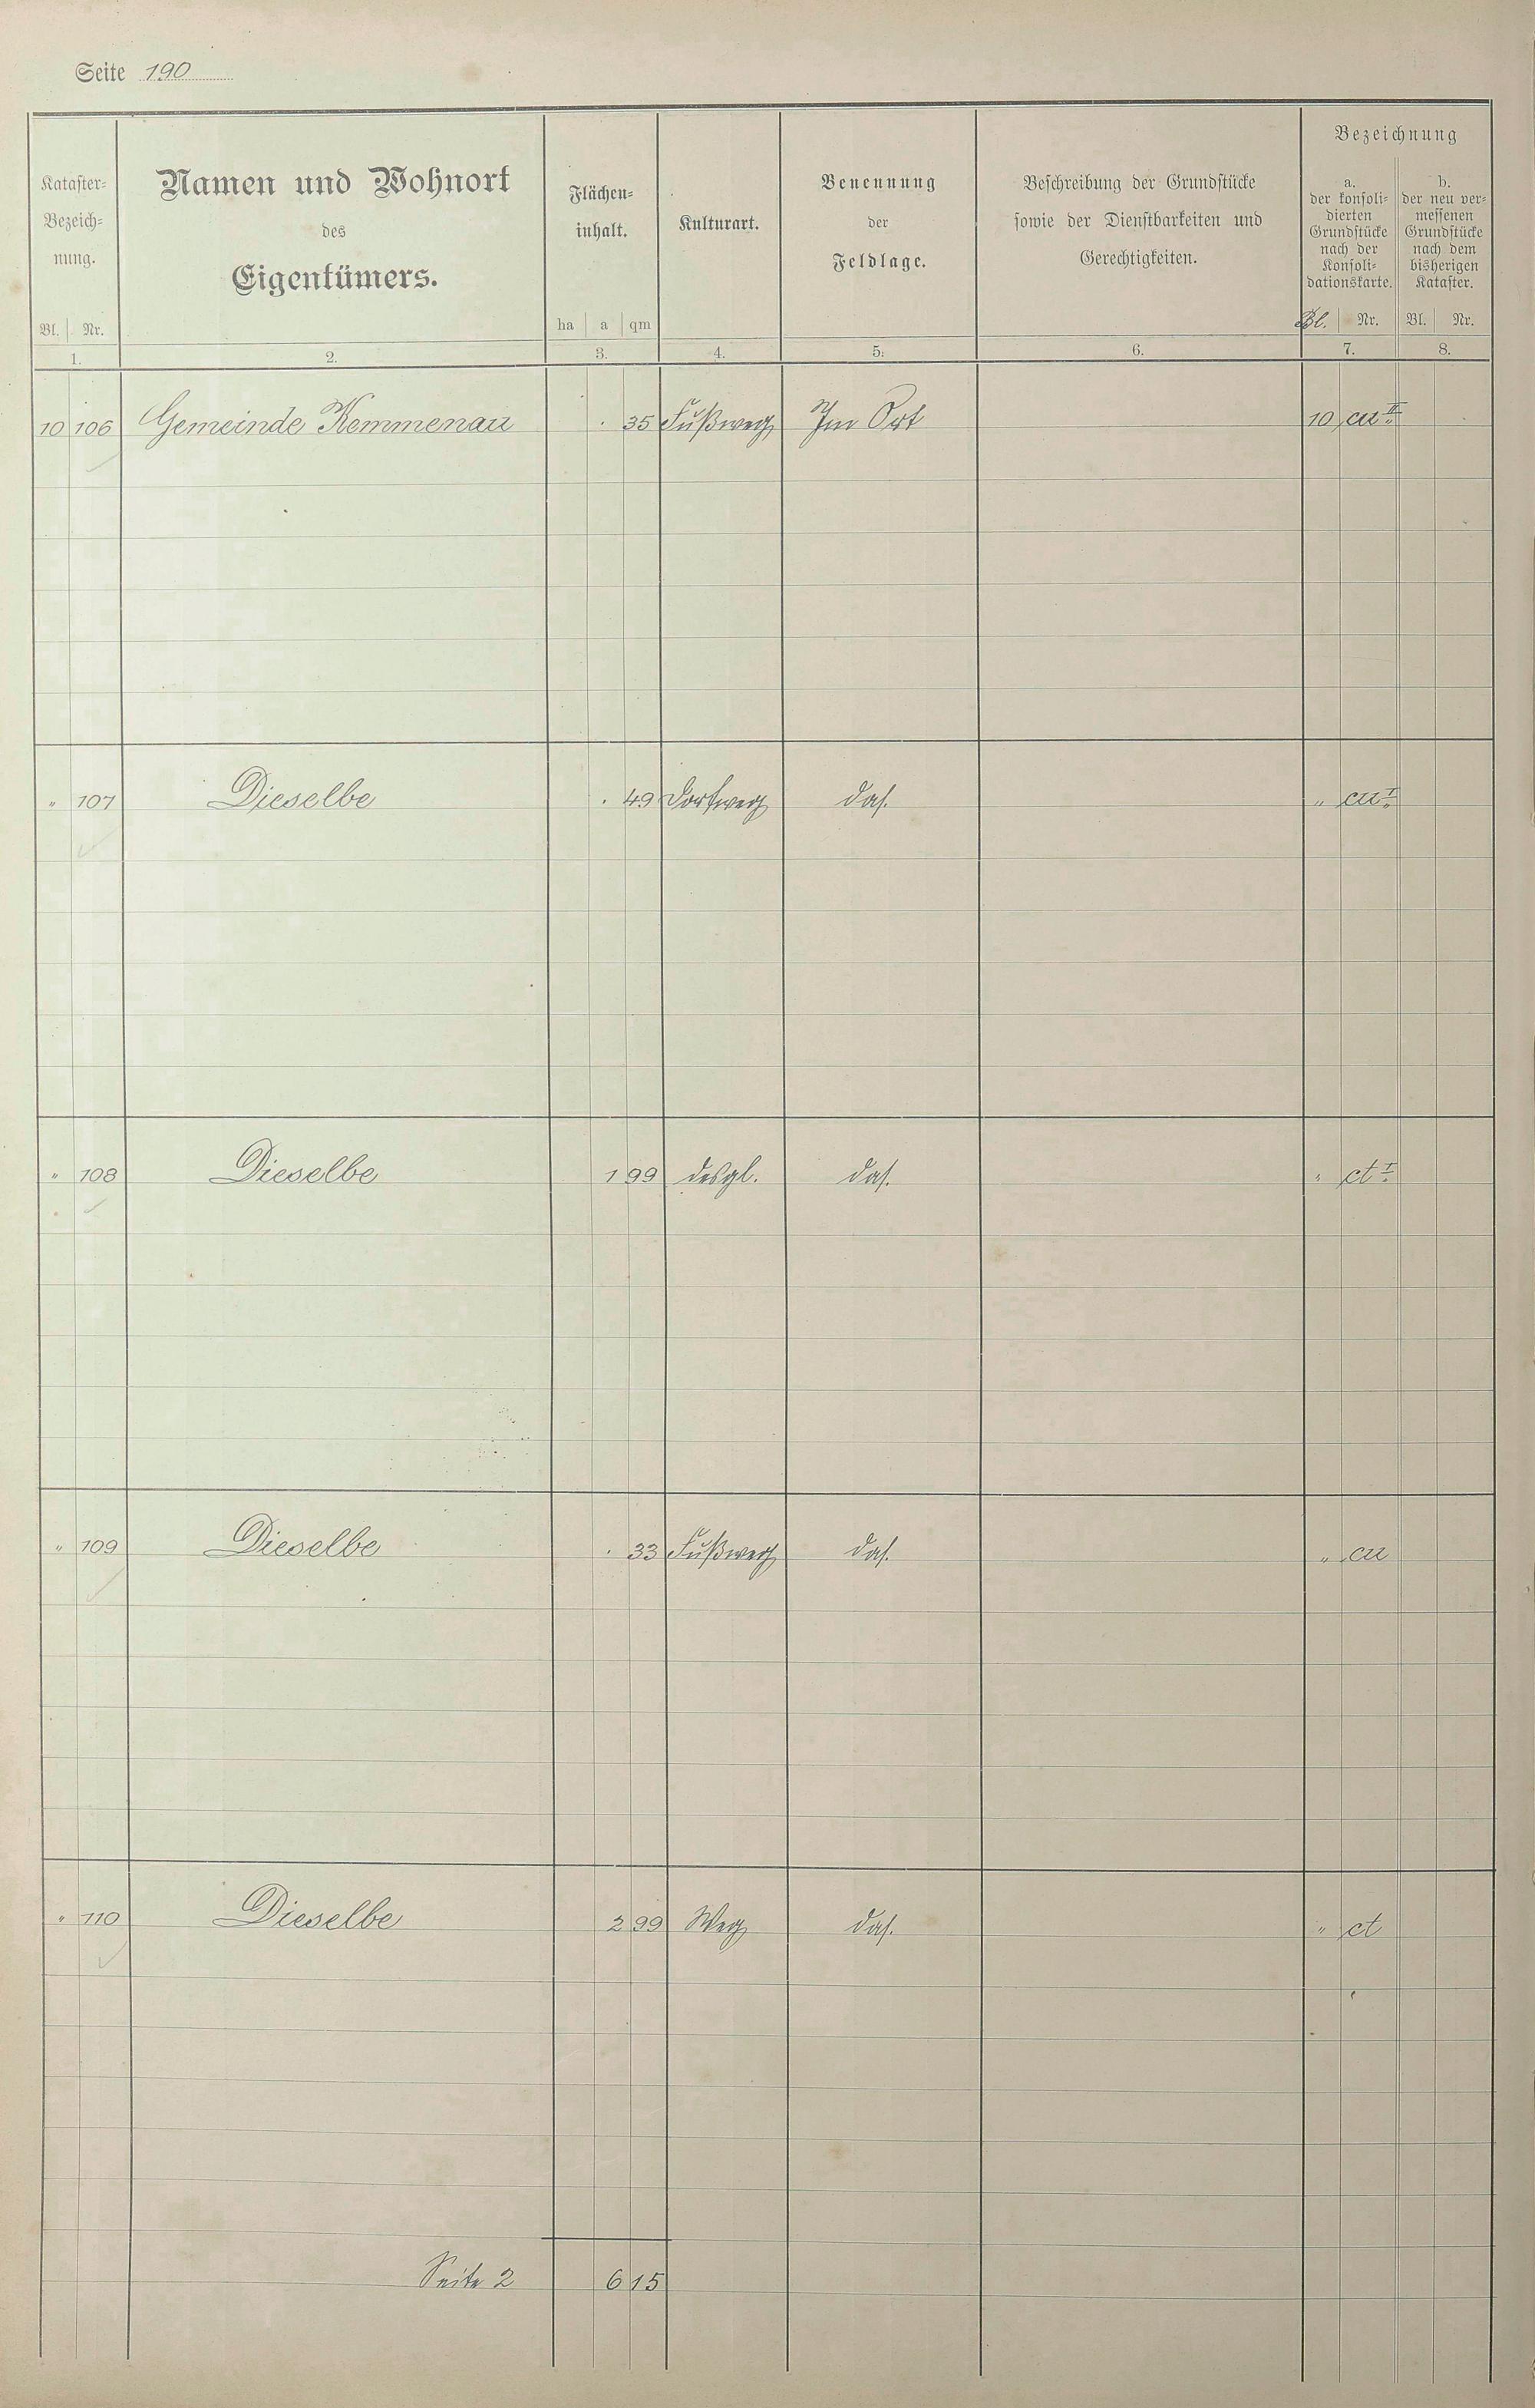 Seite 190
Kataster-
Bezeich-
nung.
Bl. Nr.
1.
Namen und Wohnort
des
Eigentümers.
2.
Flächen-
inhalt.
ha a qm
3.
Kulturart.
4.
Benennung
der
Feldlage.
5.
Beschreibung der Grundstücke
sowie der Dienstbarkeiten und
Gerechtigkeiten.
6.
Bezeichnung
a.
der konsoli-
dierten
Grundstücke
nach der
Konsoli-
dationskarte.
Bl. Nr.
7.
b.
der neu ver-
messenen
Grundstücke
nach dem
bisherigen
Kataster.
Bl. Nr.
8.
10 106 Gemeinde Kemmenau . 35 Fußweg Im Ort 10 cu II
" 107 Dieselbe . 49 Dorfweg das. " cu I
" 108 Dieselbe 1 99 desgl. das. " ct I
" 109 Dieselbe . 33 Fußweg das. " cu
" 110 Dieselbe 2 99 Weg das. " ct
Seite 2 6 15